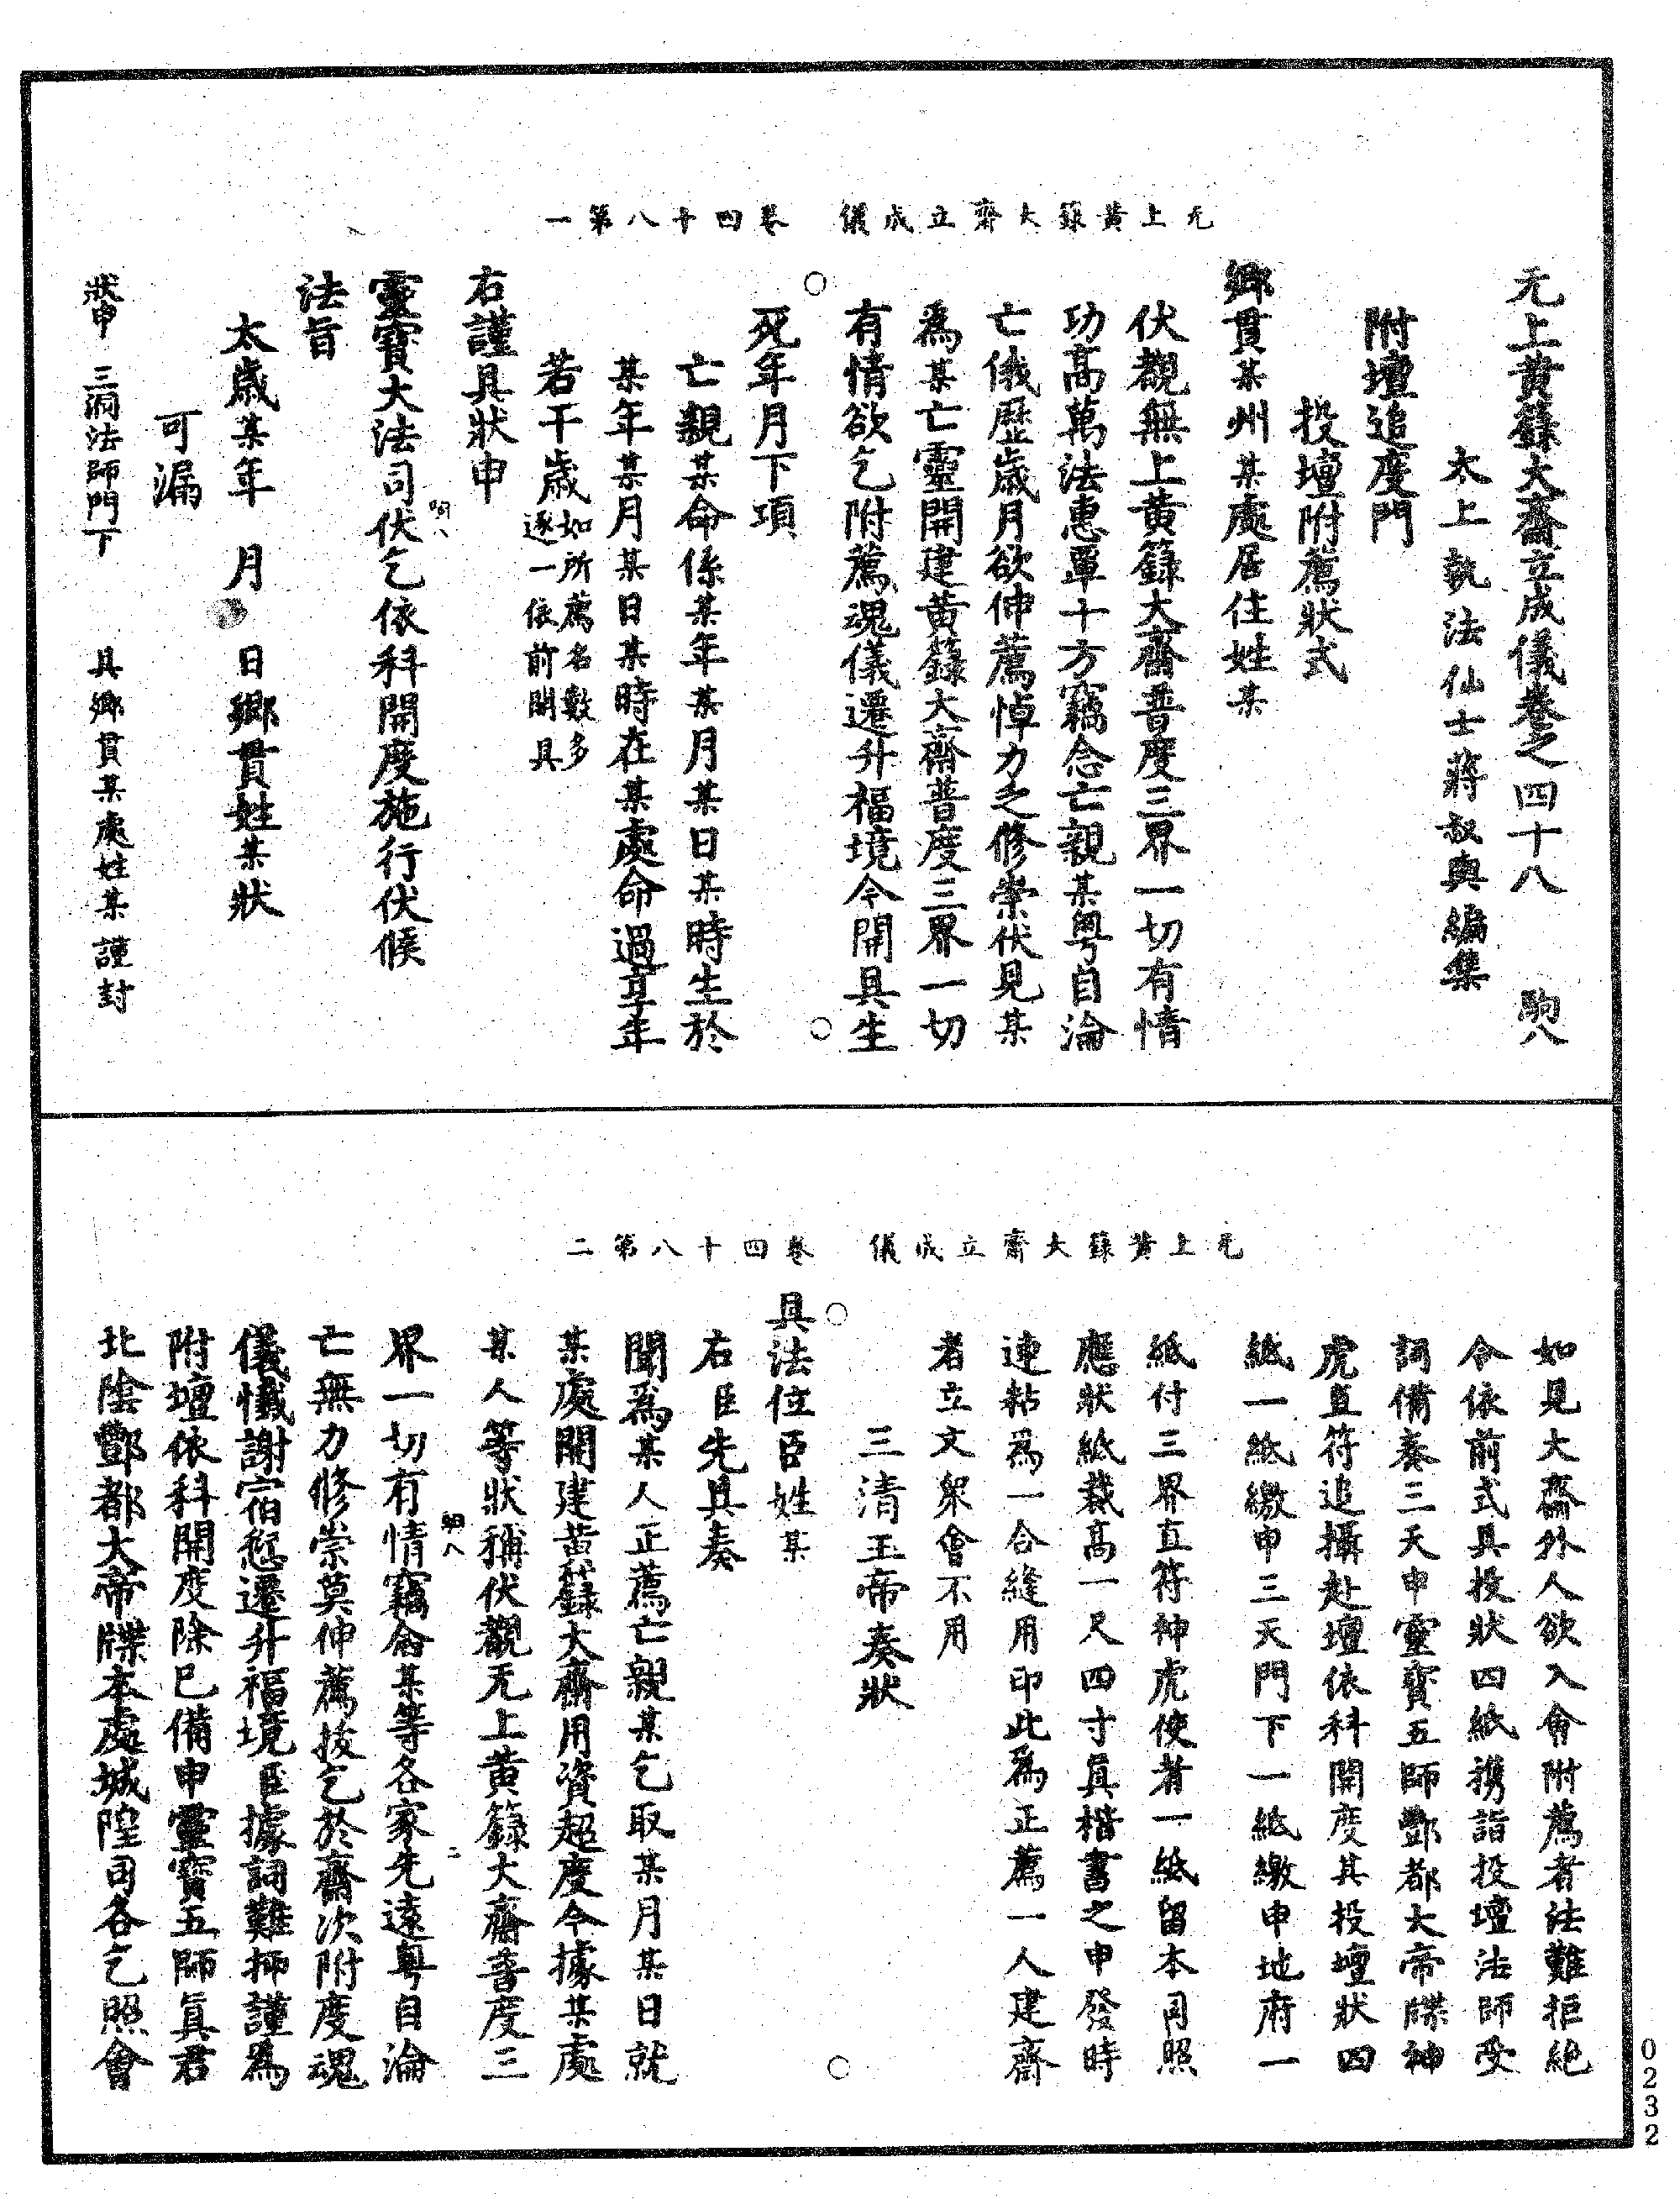 无上黃籙大齋立成儀　卷四十八第一
无上黃籙大齋立成儀卷之四十八　駒八
太上執法仙士蔣叔輿編集
附壇追度門
投壇附薦狀式
鄉貫某州某處居住姓某
伏覩無上黃籙大齋普度三界一切有情
功高萬法惠覃十方竊念亡親某粤自淪
亡俄歷歲月欲伸薦悼力乏修崇伏見某
爲某亡靈開建黃籙大齋普度三界一切
有情欲乞附薦魂儀遷升福境今開具生
死年月下項
亡親某命係某年某月某日某時生於
某年某月某日某時在某處命過享年
若干歲如所薦名數多
逐一依前開具
右謹具狀申
靈寶大法司伏乞依科開度施行伏候
法旨
太歲某年　月　日鄉貫姓某狀
可漏
狀申　三洞法師門下　具鄉貫某處姓某謹封
无上黃籙大齋立成儀　卷四十八第二
如見大齋外人欲入會附薦者法難拒絕
令依前式具投狀四紙携詣投壇法師受
詞備奏三天申靈寶五師酆都大帝牒神
虎直符追攝赴壇依科開度其投壇狀四
紙一紙繳申三天門下一紙繳申地府一
紙付三界直符神虎使者一紙留本司照
應狀紙裁高一尺四寸眞楷書之申發時
連粘爲一合縫用印此爲正薦一人建齋
者立文衆會不用
三清玉帝奏狀
具法位臣姓某
右臣先具奏
聞爲某人正薦亡親某乞取某月某日就
某處開建黃籙大齋用資超度今據某處
某人等狀稱伏覩无上黃籙大齋普度三
界一切有情竊念某等各家先遠粤自淪
亡無力修崇莫伸薦拔乞於齋次附度魂
儀懺謝宿愆遷升福境臣據詞難抑謹爲
附壇依科開度除已備申靈寶五師眞君
北陰酆都大帝牒本處城隍司各乞照會
駒八
二
0232